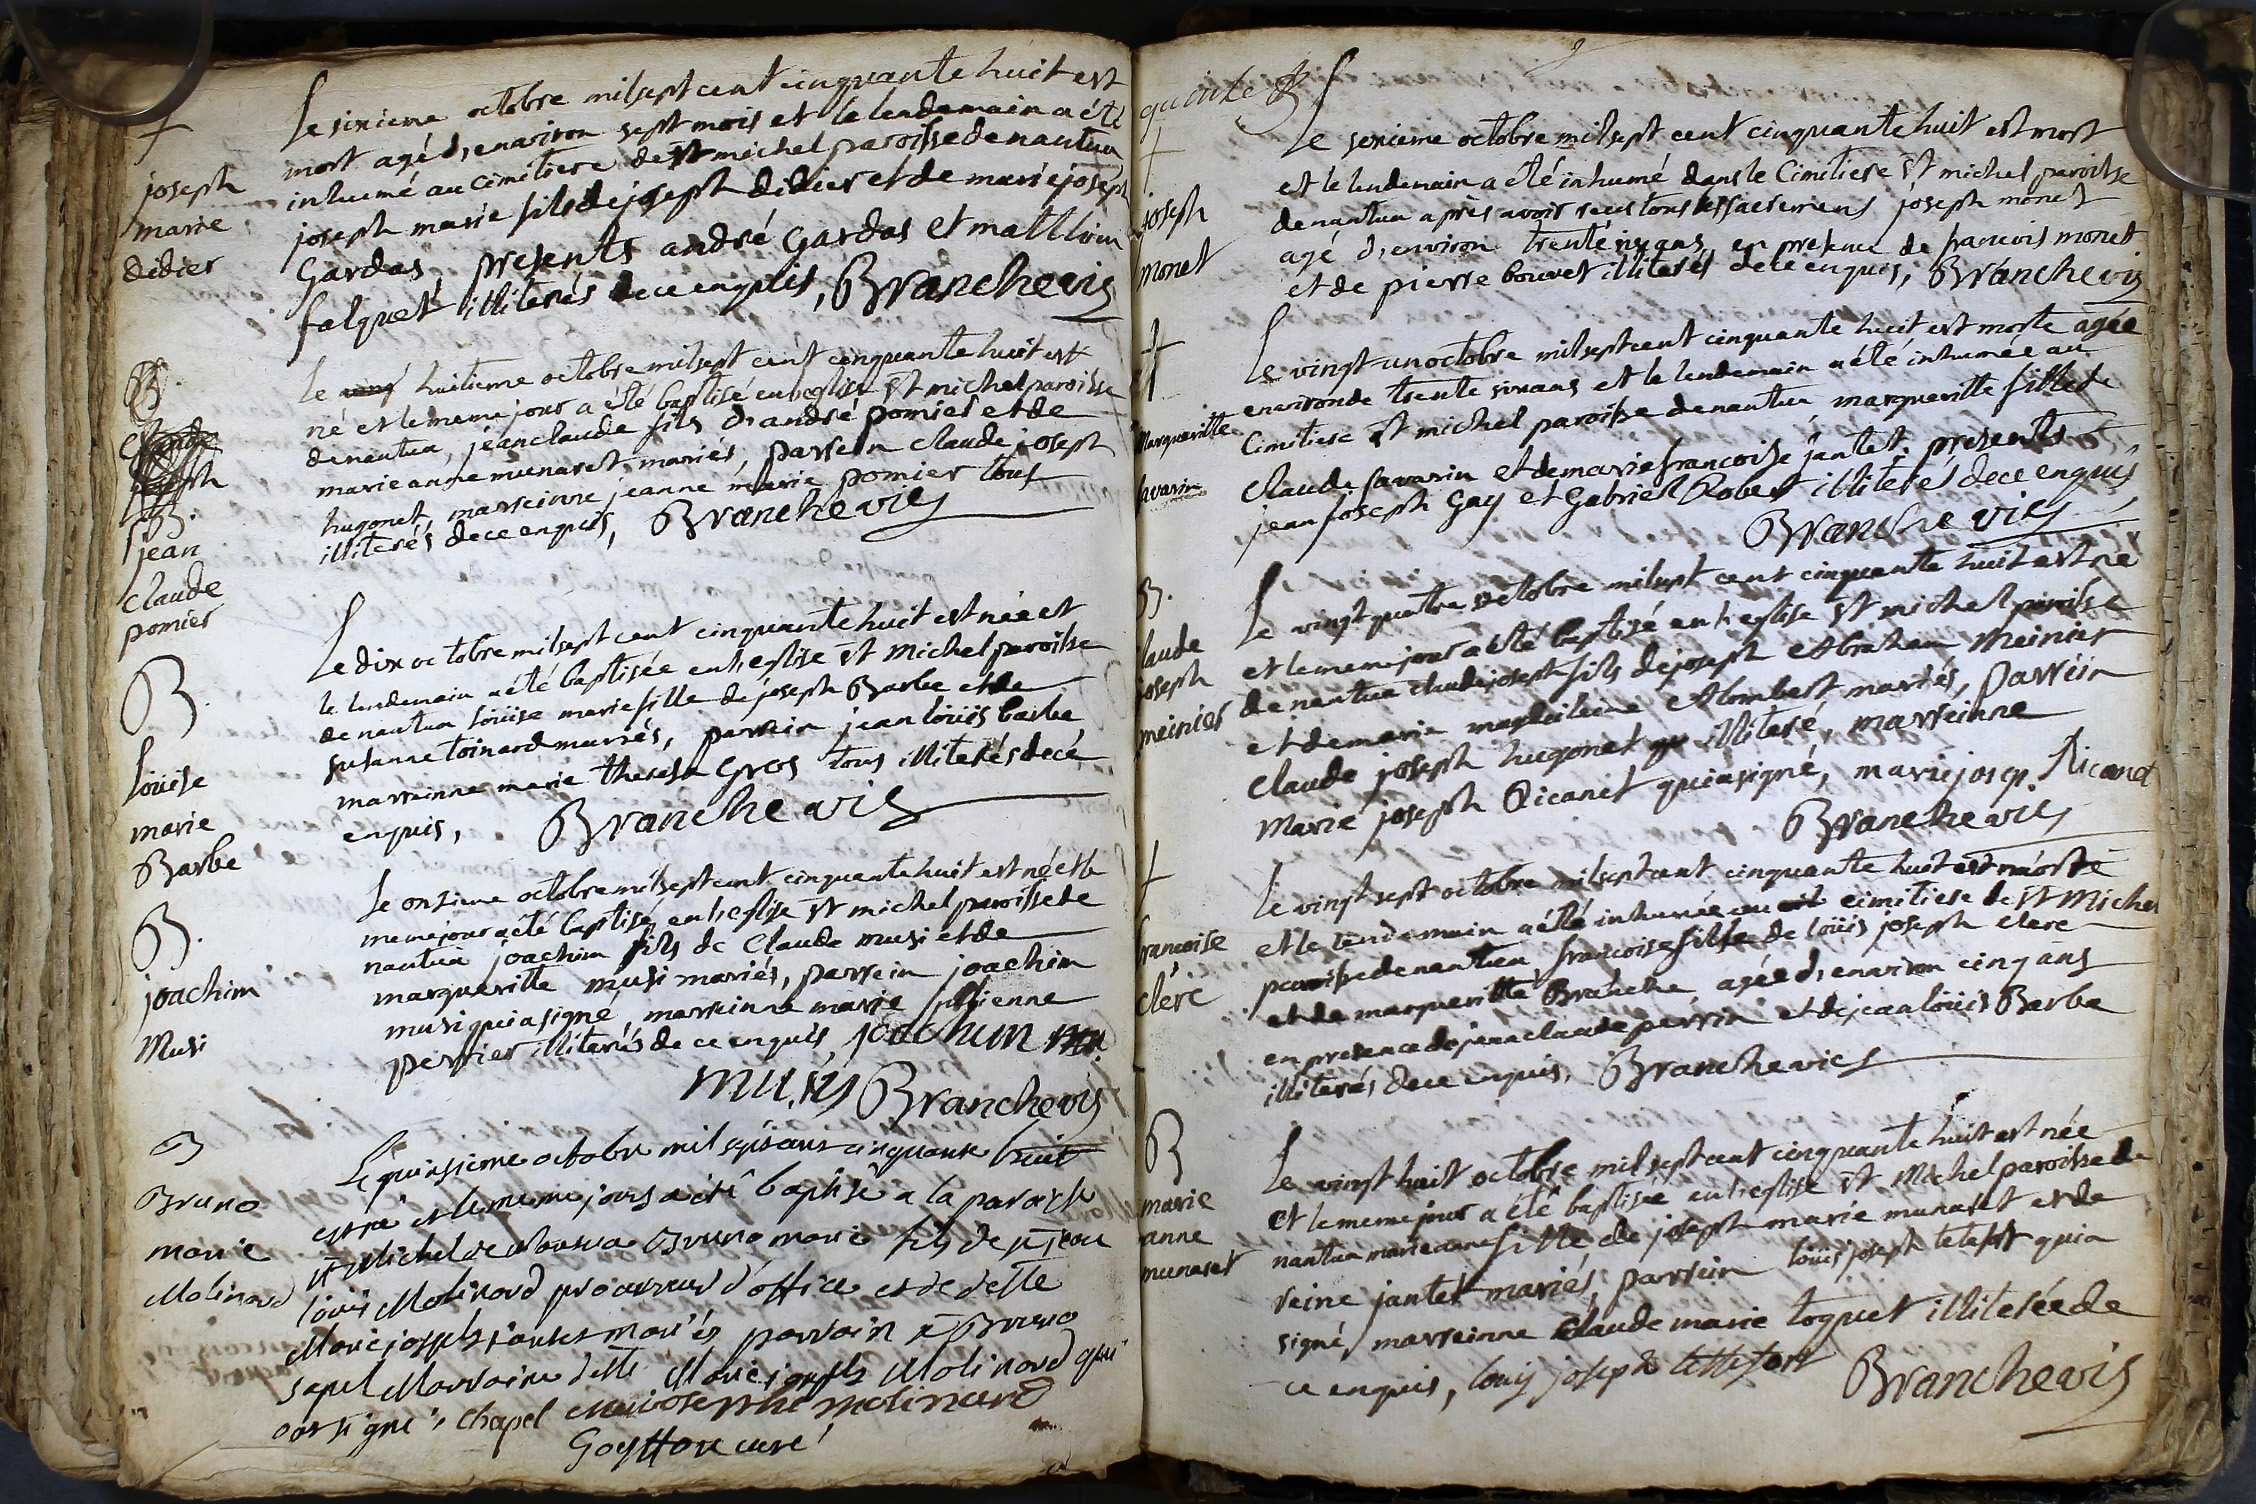 joseph
marie
didier
Le sixieme octobre milsept cent cinquante huit est
mort agé d'enaviron sept mois et le lendemain a été
inhumé au cimitiere de st michel paroisse de nantua
joseph marie fils de joseph didier et de marie joseph
Gardas, presents andré Gardas et matthieu
falquet illiterés de ce enquis, Branche vic
B.
jean
claude
pomier
Le huitieme octobre milsept cent cinquante huit est
né et le meme jour a été baptisé en l'eglise st michel paroisse
de nantua, jean claude fils d'andré pomier et de
marie anne munaret mariés, parrein claude joseph
hugonet, marreinne jeanne marie pomier tous
illiterés de ce enquis, Branche vic
B.
Loüise
marie
Barbe
Le dix octobre milsept cent cinquante huit est née et
le lendemain a été baptisée en l'eglise st michel paroisse
de nantua loüise marie fille de joseph Barbe et de
susanne toinard mariés, parrein jean loüis barbe
marreinne marie therese Gros tous illiterés de ce
enquis, Branche vic
B.
joachim
Musi
Le onsieme octobre milsept cent cinquante huit est né et le
meme jour a été baptisé en l'eglise st michel paroisse de
nantua joachim fils de Claude musi et de
margueritte musi mariés, parrein joachim
musi qui a signé, marreinne marie
perrier illiterés de ce enquis, joachim
musy Branche vic
B
Bruno
marie
Molinard
Le quinsieme octobre mil sept cent cinquante huit
est né et le meme jours a été baptisé a la paroisse
st Michel de Nantua Bruno marie fils de sr jean
louis Molinard procureur d'office et de delle
Marie joseph jantet mariés parrain sr Bruno
Marraine delle Marie joseph Molinard qui
ont signé, Chapel Marie Molinard
curé
joseph
monet
Le sexieme octobre milsept cent cinquante huit est mort
et le lendemain a été inhumé dans le Cimitiere st michel paroisse
de nantua après avoir reçus tous les sacremens joseph monet
agé d'environ trente ans, en presence de francois monet
et de pierre bouvet illiterés de ce enquis, Branche vic
Margueritte
savarin
Le vingt un octobre milsept cent cinquante huit est morte agée
environ de trente six ans et le lendemain a été inhumée au
Cimitiere st michel paroisse de nantua margueritte fille de
Claude savarin et de marie francoise jantet. presents
jean joseph Gay et Gabriel Robert illiterés de ce enquis
Branche vic
B.
laude
joseph
meinier
Le vingt quatre octobre milsept cent cinquante huit est né
et le meme jour a été baptisé en l'eglise st michel paroisse
de nantua claude joseph fils de joseph Abraham Meinier
et de marie Alombert mariés, parrein
claude joseph hugonet illiteré, marreinne
Marie joseph Ricanet qui a signé, marie josep Ricanet
Branche vic
francoise
clerc
Le vingt sept octobre milsept cent cinquante huit est morte
et le lendemain a été inhumée au cimitiere de st Michel
paroisse de nantua francoise fille de loüis joseph clerc
et de margueritte Branche agée d'enaviron cinq ans
en presence de jean claude perrin et de jean loüis Barbe
illiterés de ce enquis, Branche vic
B
marie
anne
munaret
Le vingt huit octobre milsept cent cinquante huit est née
et le meme jour a été baptisée en l'eglise st Michel paroisse de
nantua marie anne fille de joseph marie munaret et de
reine jantet mariés, parrein loüis joseph tetefort qui a
signé, marreinne Claude marie toquet illiterée de
ce enquis, louis joseph tettefort Branche vic